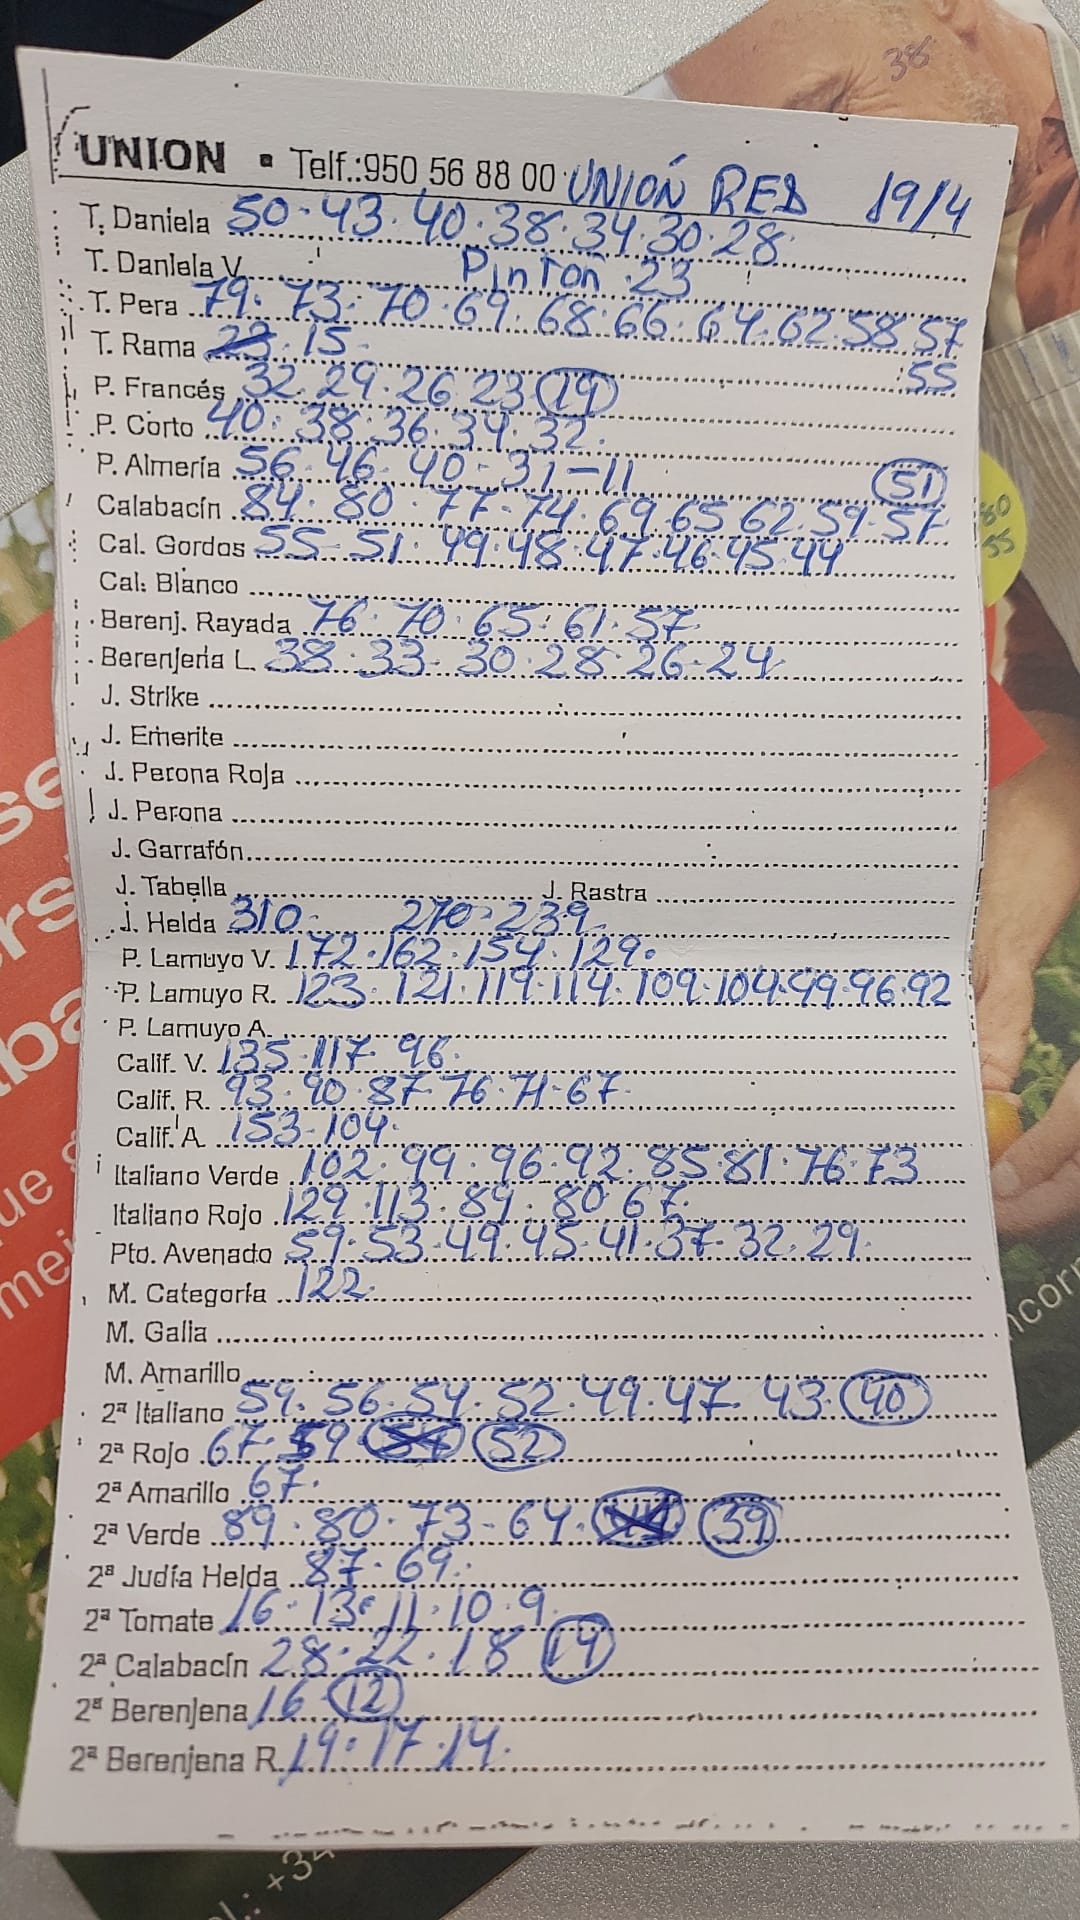 38
UNION ▪ Telf.:950 56 88 00 UNIÓN RED 19/4
T. Daniela 50·43·40·38·34·30·28·
T. Daniela V. Pinton 23
T. Pera 79·73·70·69·68·66·64·62·58·57
55
T. Rama 23·15·
P. Francés 32·29·26·23 19
P. Corto 40·38·36·34·32·
P. Almería 56·46·40-31-11 51
Calabacín 84·80·77·74·69·65·62·59·57
80
55
Cal. Gordos 55-51·49·48·47·46·45·44
Cal. Blanco
Berenj. Rayada 76·70·65·61·57·
Berenjena L. 38·33-30·28·26-24·
J. Strike
J. Emerite
J. Perona Roja
J. Perona
J. Garrafón
J. Tabella J. Rastra
J. Helda 310· 270·239·
P. Lamuyo V. 172·162·154·129·
P. Lamuyo R. 123·121·119·114·109·104·99·96·92
P. Lamuyo A.
Calif. V. 135·117·96·
Calif. R. 93·90·87·76·71-67·
Calif. A. 153-104·
Italiano Verde 102·99·96·92·85·81·76·73
Italiano Rojo 129·113·89·80·67·
Pto. Avenado 59·53·49·45·41·37·32·29·
M. Categoría 122·
M. Galia
M. Amarillo
2ª Italiano 59·56·54·52·49·47·43 40
2ª Rojo 67·59 52
2ª Amarillo 67·
2ª Verde 89·80·73-64· 39
2ª Judía Helda 87·69·
2ª Tomate 16·13·11·10·9
2ª Calabacín 28·22·18 14
2ª Berenjena 16 12
2ª Berenjena R. 19·17·14·